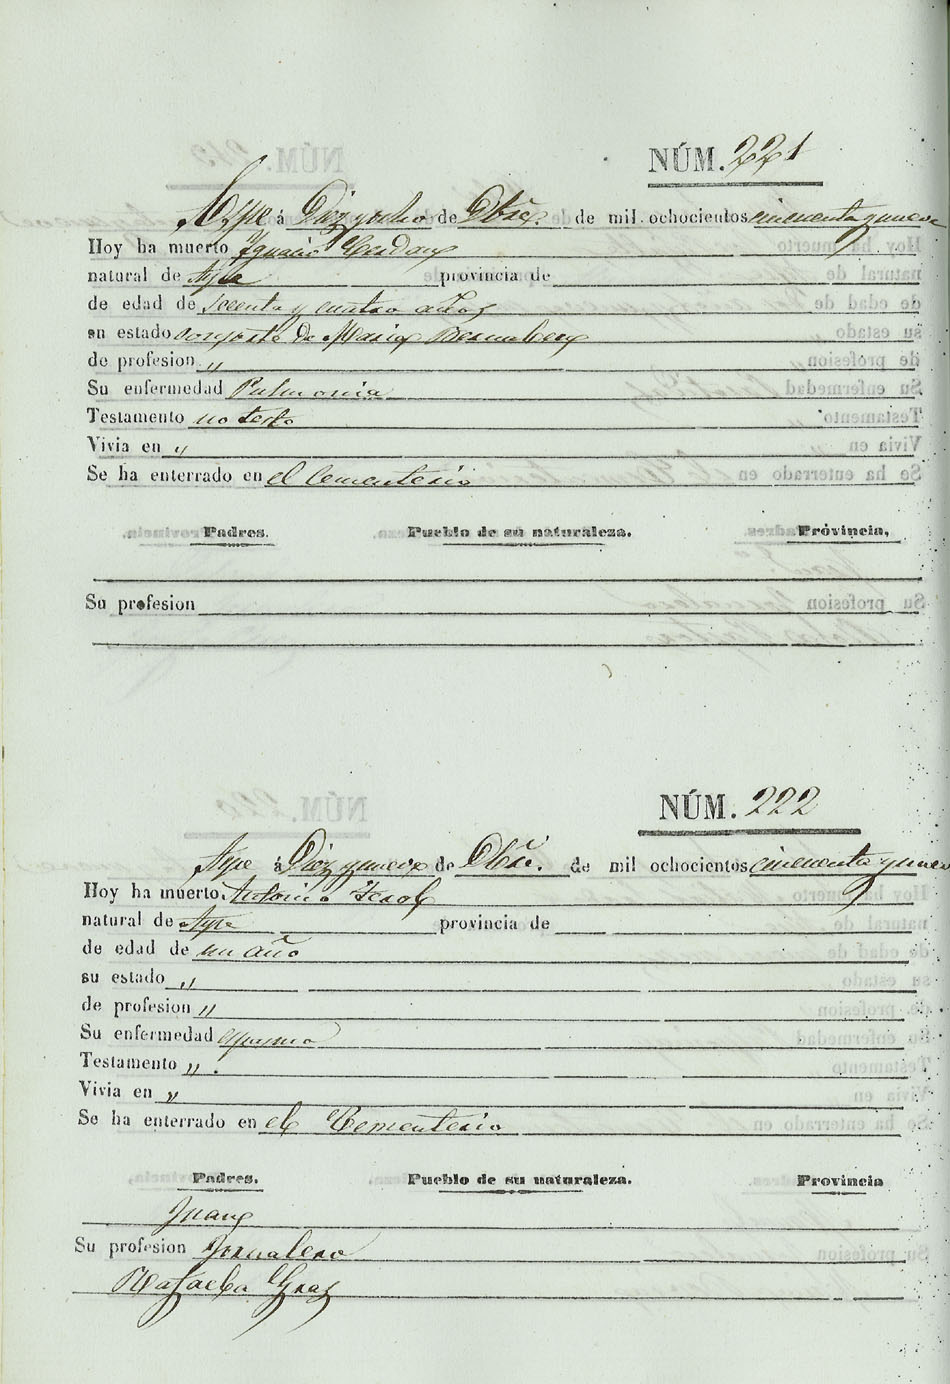 NÚM. 221
Aspe á Diez y ocho de Dbre. de mil ochocientos cincuenta y nueve
Hoy ha muerto Ignacio
natural de Aspe provincia de
de edad de setenta y cuatro años
su estado consorte de Maria
de profesion "
Su enfermedad Pulmonia
Testamento no testo
Vivia en "
Se ha enterrado en el Cementerio
Padres. Pueblo de su naturaleza. Próvincia,
Su profesion
NÚM. 222
Aspe á Diez y nueve de Dbre. de mil ochocientos cincuenta y nueve
Hoy ha muerto Antonio
natural de Aspe provincia de
de edad de un año
su estado "
de profesion "
Su enfermedad
Testamento " .
Vivia en "
Se ha enterrado en el Cementerio
Padres. Pueblo de su naturaleza. Provincia
Juan
Su profesion Jornalero
Rafaela